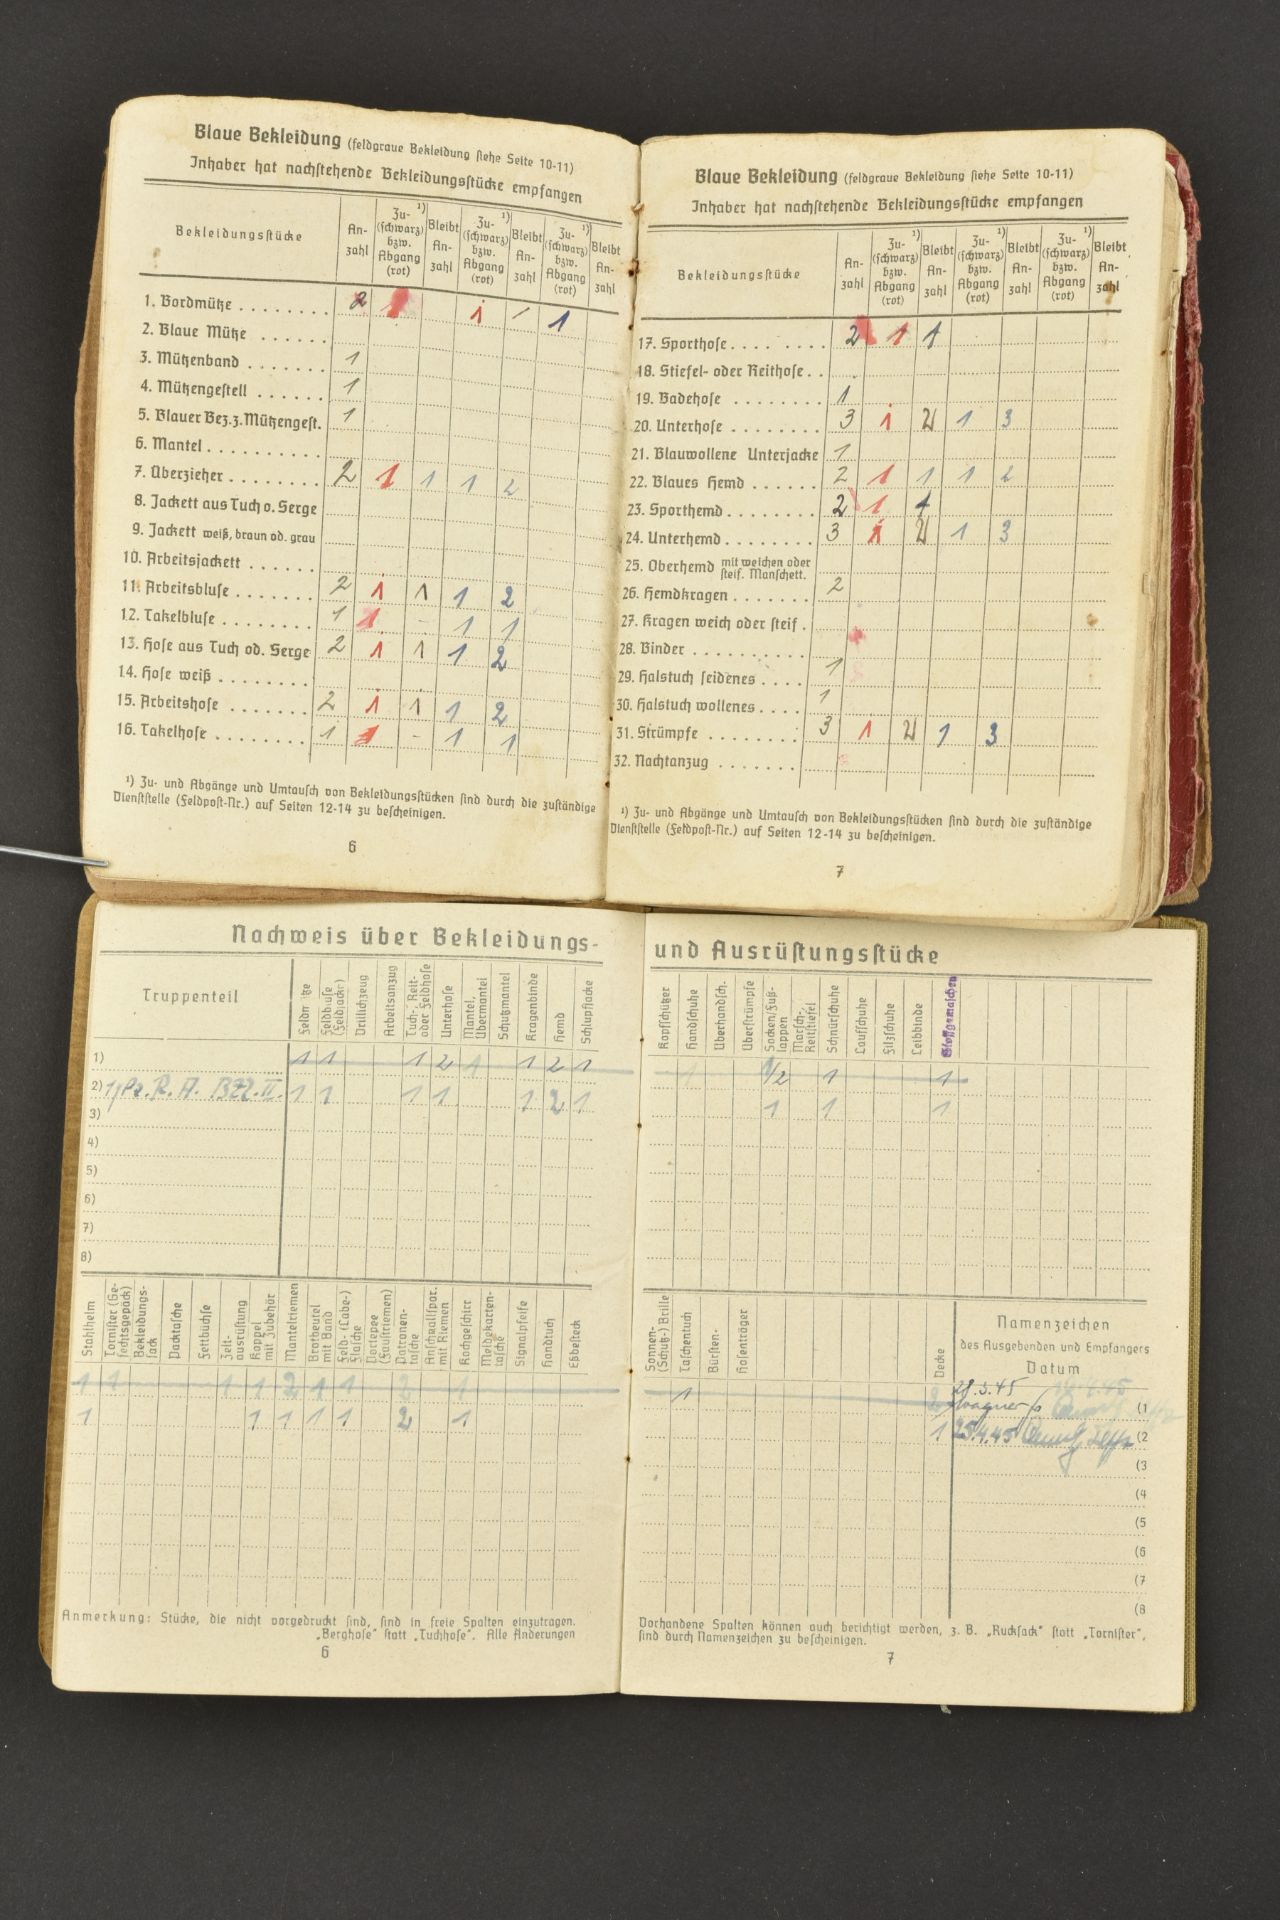 Blaue Bekleidung (feldgraue Bekleidung siehe Seite 10-11)
Inhaber hat nachstehende Bekleidungsstücke empfangen
Bekleidungsstücke | An-zahl | Zu- ¹) (schwarz) bzw. Abgang (rot) | Bleibt An-zahl | Zu- ¹) (schwarz) bzw. Abgang (rot) | Bleibt An-zahl | Zu- ¹) (schwarz) bzw. Abgang (rot) | Bleibt An-zahl
1. Bordmütze 2 1 1 1 1
2. Blaue Mütze
3. Mützenband 1
4. Mützengestell 1
5. Blauer Bez. z. Mützengest. 1
6. Mantel
7. Überzieher 2 1 1 1 2
8. Jackett aus Tuch o. Serge
9. Jackett weiß, braun od. grau
10. Arbeitsjackett
11. Arbeitsbluse 2 1 1 1 2
12. Takelbluse 1 1 - 1 1
13. Hose aus Tuch od. Serge 2 1 1 1 2
14. Hose weiß
15. Arbeitshose 2 1 1 1 2
16. Takelhose 1 1 - 1 1
¹) Zu- und Abgänge und Umtausch von Bekleidungsstücken sind durch die zuständige
Dienststelle (Feldpost-Nr.) auf Seiten 12-14 zu bescheinigen.
6
Blaue Bekleidung (feldgraue Bekleidung siehe Seite 10-11)
Inhaber hat nachstehende Bekleidungsstücke empfangen
Bekleidungsstücke | An-zahl | Zu- ¹) (schwarz) bzw. Abgang (rot) | Bleibt An-zahl | Zu- ¹) (schwarz) bzw. Abgang (rot) | Bleibt An-zahl | Zu- ¹) (schwarz) bzw. Abgang (rot) | Bleibt An-zahl
17. Sporthose 2 1 1
18. Stiefel- oder Reithose
19. Badehose 1
20. Unterhose 3 1 2 1 3
21. Blauwollene Unterjacke 1
22. Blaues Hemd 2 1 1 1 2
23. Sporthemd 2 1 1
24. Unterhemd 3 1 2 1 3
25. Oberhemd mit weichen oder steif. Manschett.
26. Hemdkragen 2
27. Kragen weich oder steif
28. Binder
29. Halstuch seidenes 1
30. Halstuch wollenes 1
31. Strümpfe 3 1 2 1 3
32. Nachtanzug
¹) Zu- und Abgänge und Umtausch von Bekleidungsstücken sind durch die zuständige
Dienststelle (Feldpost-Nr.) auf Seiten 12-14 zu bescheinigen.
7
Nachweis über Bekleidungs-
Truppenteil | Feldmütze | Feldbluse (Feldjacke) | Drillichzeug | Arbeitsanzug | Tuch-, Reit- oder Feldhose | Unterhose | Mantel, Übermantel | Schutzmantel | Kragenbinde | Hemd | Schlupfjacke
1) 1 1 1 2 1 1 2 1
2) 1 1 1 1 1 2 1
3)
4)
5)
6)
7)
8)
Stahlhelm | Tornister (Ge-fechtsgepäck) | Bekleidungs-sack | Packtasche | Fettbüchse | Zelt-ausrüstung | Koppel mit Zubehör | Mantelriemen | Brotbeutel mit Band | Feld- (Labe-) flasche | Portepee (Faustriemen) | Patronen-tasche | Anschnallspor. mit Riemen | Kochgeschirr | Meldekarten-tasche | Signalpfeife | Handtuch | Eßbesteck
1 1 1 1 2 1 1 2 1
1 1 1 1 1 2 1
Anmerkung: Stücke, die nicht vorgedruckt sind, sind in freie Spalten einzutragen.
„Berghose" statt „Tuchhose". Alle Änderungen
6
und Ausrüstungsstücke
Kopfschützer | Handschuhe | Überhandsch. | Überstrümpfe | Socken/Fuß-lappen | Marsch-, Reitstiefel | Schnürschuhe | Laufschuhe | Filzschuhe | Leibbinde
1 1/2 1 1
1 1 1
Sonnen- (Schutz-) Brille | Taschentuch | Bürsten- | Hosenträger | Decke | Namenzeichen
des Ausgebenden und Empfängers
Datum
1 2 28.3.45 Wagner (1
1 25.4.45 (2
(3
(4
(5
(6
(7
(8
Vorhandene Spalten können auch berichtigt werden, z. B. „Rucksack" statt „Tornister",
sind durch Namenzeichen zu bescheinigen.
7